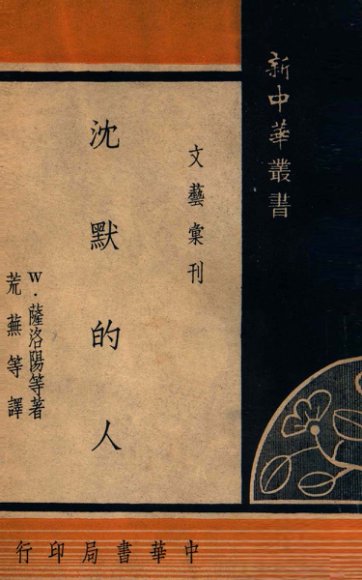 新中華叢書
文藝彙刊
沈默的人
W·薩洛陽等著
荒蕪等譯
中華書局印行